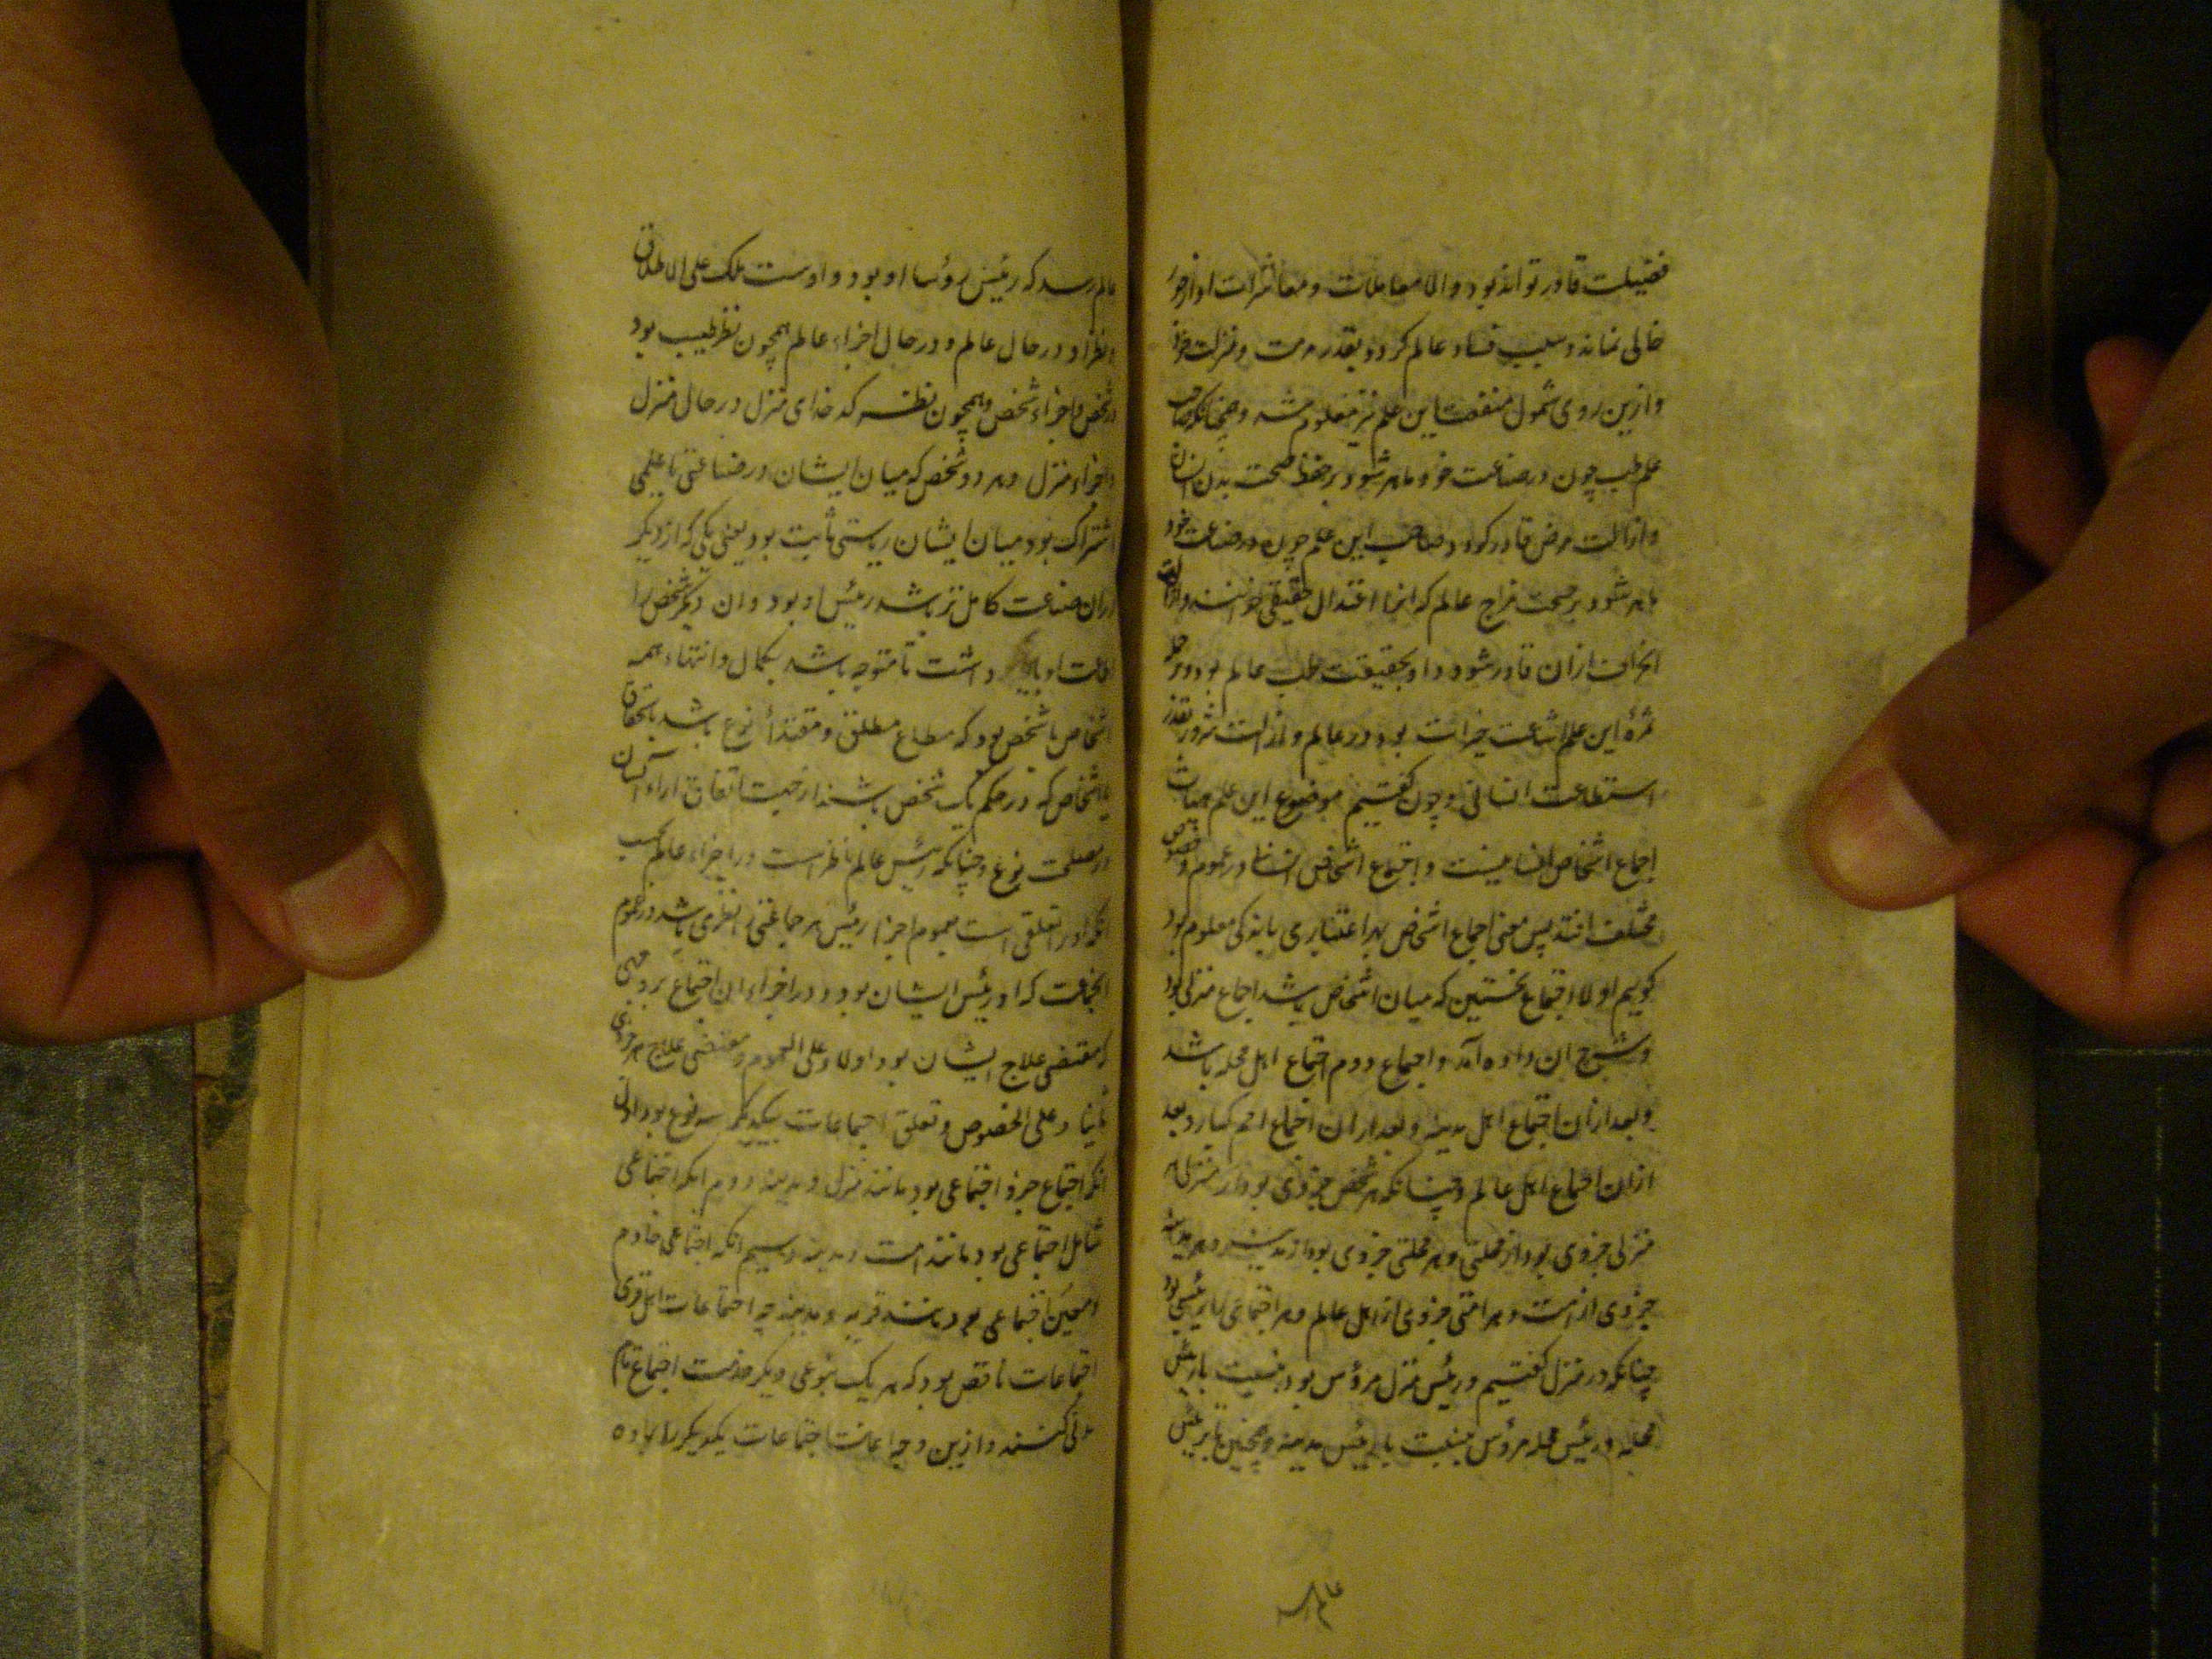 فضیلت قادر تواند بود والا معاملات و معاشرات او از جور
خالی نماند و سبب فساد عالم گردد بقدر مرتبت و منزلت خود
و ازین روی شمول منفعت این علم نیز معلوم شد و چنانکه صاحب
علم طب چون در صناعت خود ماهر شود بر حفظ صحت بدن انسان
و ازالت مرض قادر گردد صاحب این علم چون در صناعت خود
ماهر شود بر صحت مزاج عالم که انرا اعتدال حقیقی خوانند و ازالت
انحراف ازان قادر شود و او بحقیقت طبیب عالم بود و بر جمله
ثمرهٔ این علم اشاعت خیرات بود در عالم و ازالت شرور بقدر
استطاعت انسانی و چون گفتیم موضوع این علم هیأت
اجتماع اشخاص انسانیست و اجتماع اشخاص انسانی در عموم و خصوص
مختلف افتد پس معنی اجتماع اشخاص بهر اعتباری باید کی معلوم بود
گوییم اولا اجتماع نخستین که میان اشخاص باشد اجتماع منزلی بود
و شرح ان داده آمد و اجتماع دوم اجتماع اهل محله باشد
و بعد ازان اجتماع اهل مدینه و بعد ازان اجتماع امم کبار و بعد
ازان اجتماع اهل عالم و چنانکه هر شخص جزوی بود از منزل هر
منزلی جزوی بود از محلتی و هر محلتی جزوی بود از مدینه و هر مدینه
جزوی از امت و هر امتی جزوی از اهل عالم و هر اجتماعی را رئیسی بود
چنانکه در منزل گفتیم و رئیس منزل مرؤس بود بنسبت با رئیس
محله و رئیس محله مرؤس بنسبت با رئیس مدینه و همچنین تا برئیس
عالم رسد
عالم رسد که رئیس رؤسا او بود و اوست ملک علی الاطلاق
و نظر او در حال عالم و در حال اجزاء عالم همچون نظر طبیب بود
در شخص و اجزاء شخص و همچون نظر کدخدای منزل در حال منزل
و اجزاء منزل و هر دو شخص که میان ایشان در صناعتی یا علمی
اشتراک بود میان ایشان ریاستی ثابت بود یعنی یکی که از دیگر
دران صناعت کامل تر باشد رئیس او بود و ان دیگر شخص را
طاعت او باید داشت تا متوجه باشد بکمال و انتهاء همه
اشخاص با شخصی بود که مطاع مطلق و مقتدأ نوع باشد باستحقاق
یا اشخاص که در حکم یک شخص باشند از جهت اتفاق اراء ایشان
در مصلحت نوع و چنانکه رئیس عالم ناظر است در اجزاء عالم بحسب
انکه او را تعلقی است بعموم اجزا رئیس هر جماعتی را نظری باشد در عموم
انجماعت که او رئیس ایشان بود و در اجزاء ان اجتماع بر وجهی
که مقتضی علاج ایشان بود اولا و علی العموم و مقتضی علاج هر جزوی
ثانیا و علی الخصوص و تعلق اجتماعات بیکدیگر سه نوع بود اول
انکه اجتماع جزو اجتماعی بود مانند منزل و مدینه و دوم انکه اجتماعی
شامل اجتماعی بود مانند امت و مدینه و سیم انکه اجتماعی خادم
و معین اجتماعی بود مانند قریه و مدینه چه اجتماعات اهل قری
اجتماعات ناقص بود که هر یک بنوعی دیگر خدمت اجتماع تام
مدنی کنند و ازین وجه اعانت اجتماعات یکدیگر را بماده